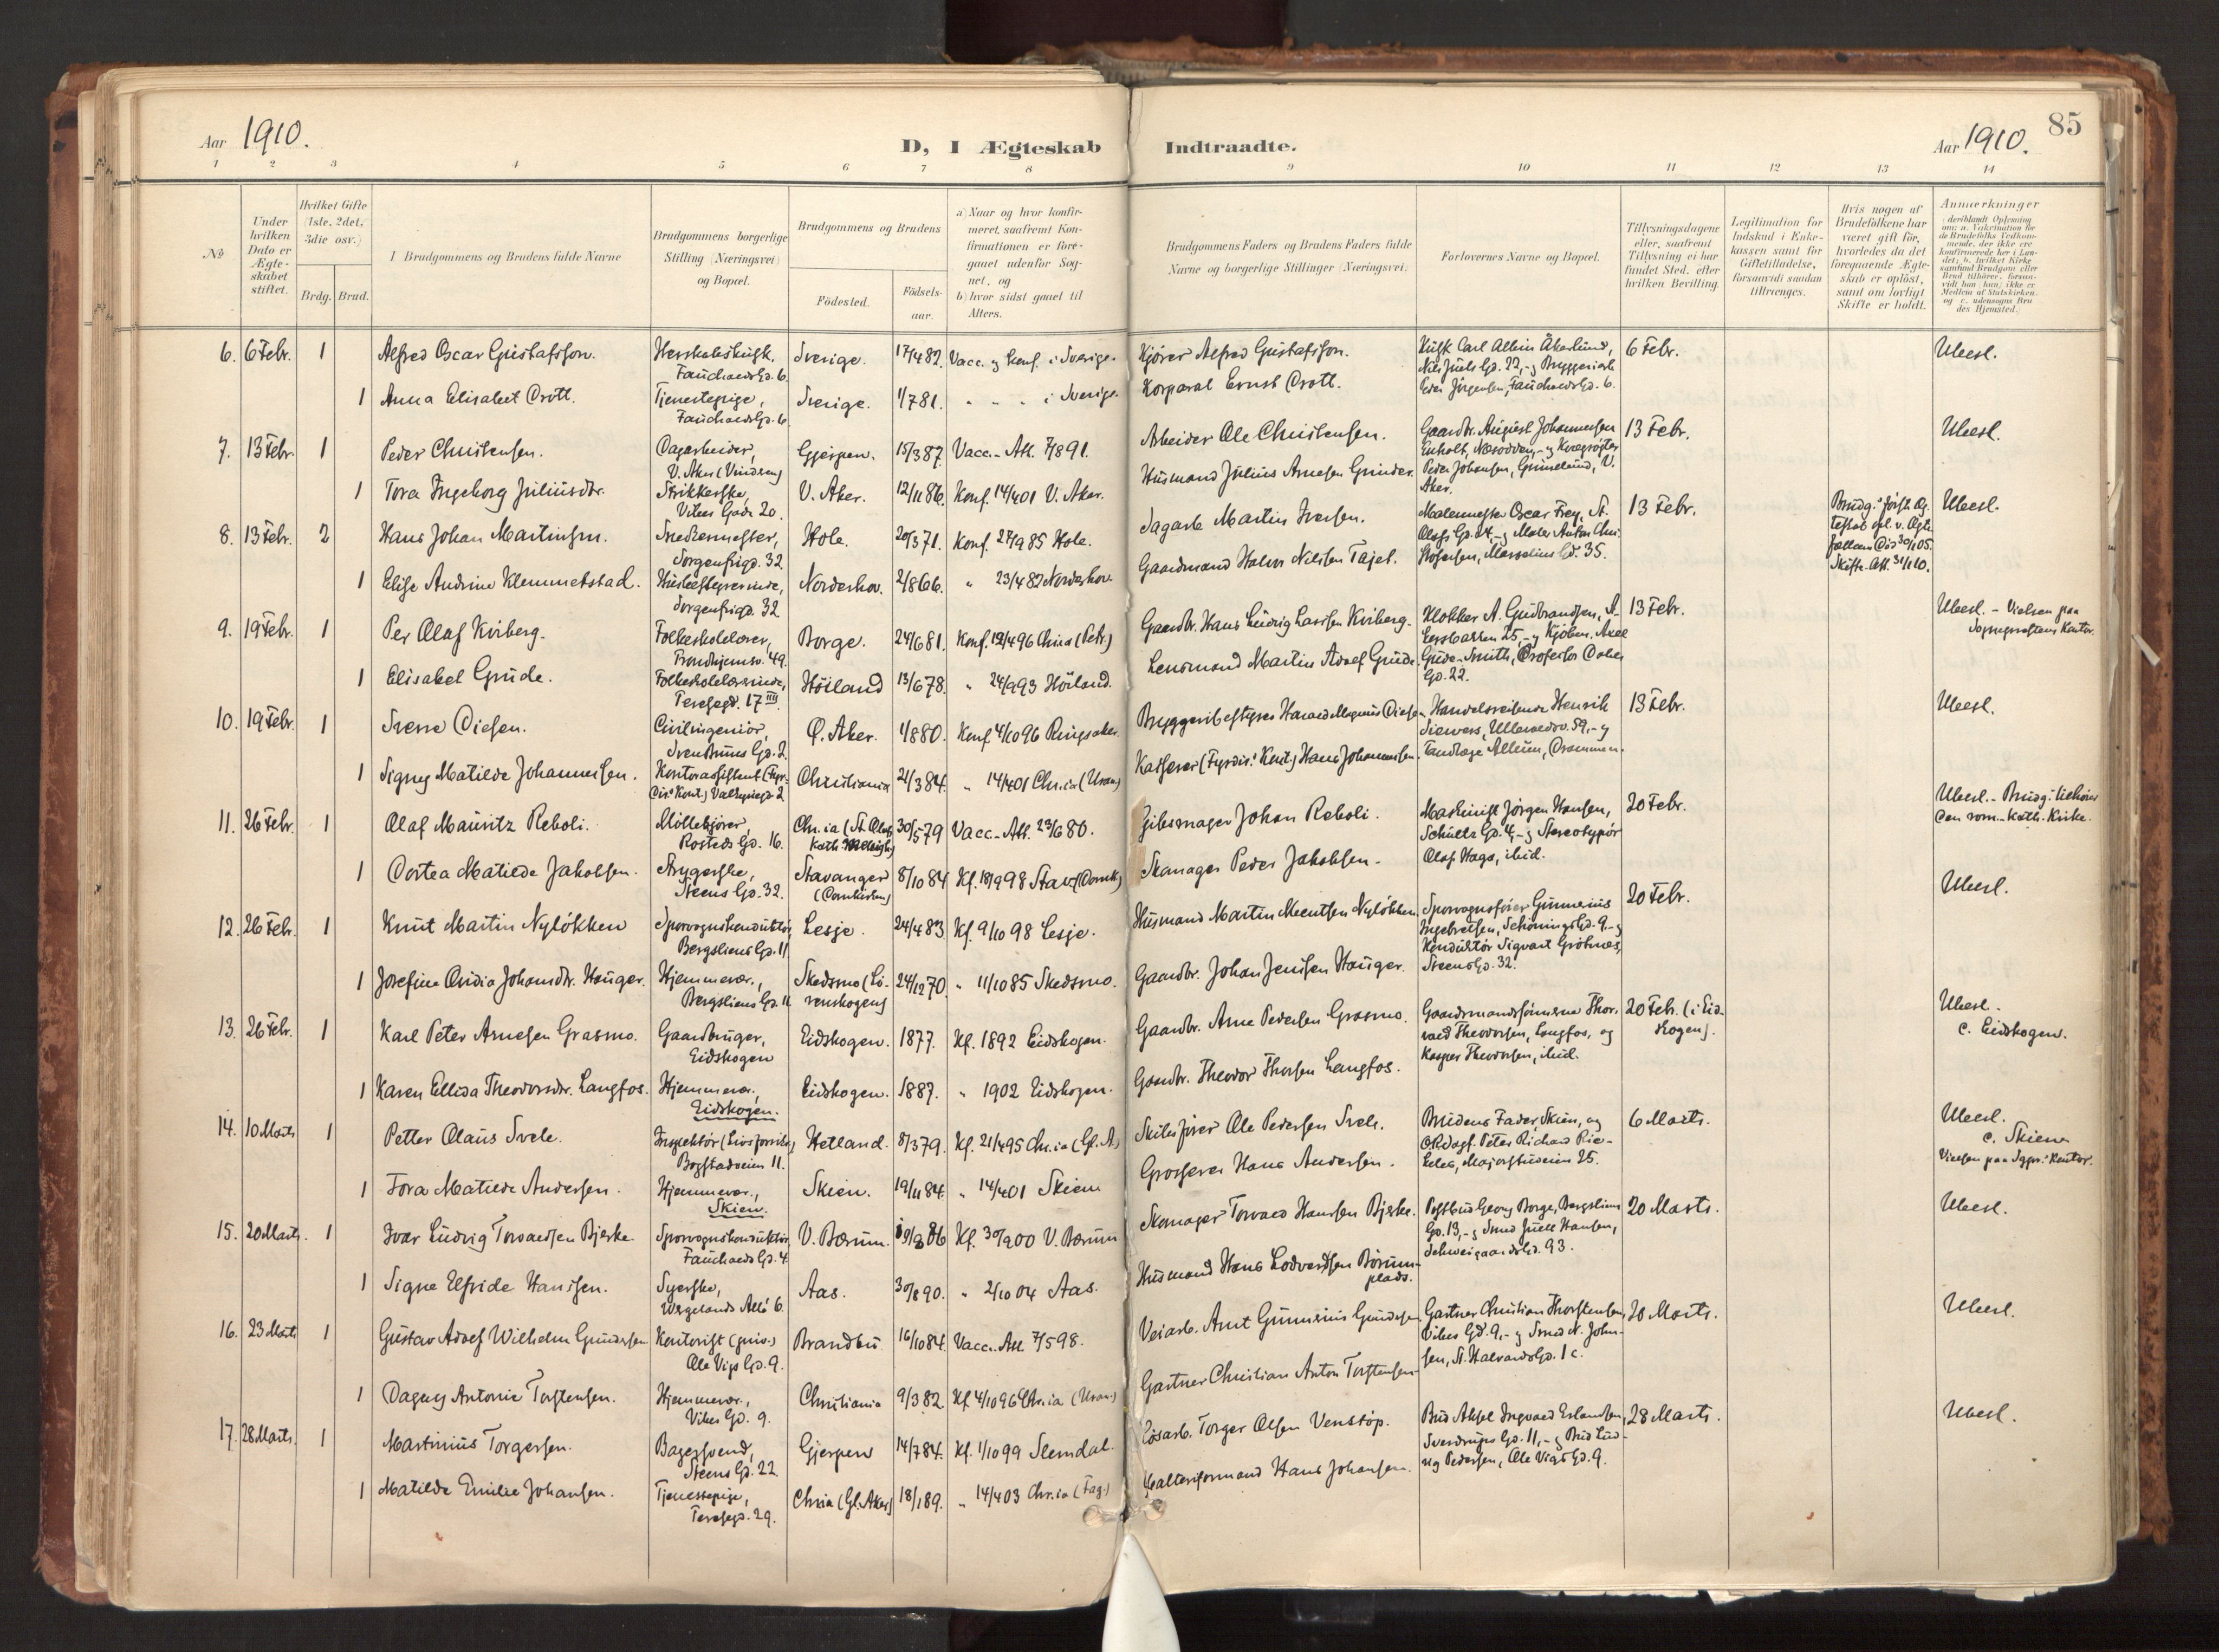 85
Aar 1910.
D, I Ægteskab Indtraadte.
Aar 1910.
1 2 3 4 5 6 7 8 9 10 11 12 13 14
№
Under hvilken Dato er Ægteskabet stiftet.
Hvilket Gifte (1ste, 2det, 3die osv.)
Brdg. Brud.
Brudgommens og Brudens fulde Navne
Brudgommens borgerlige Stilling (Næringsvei) og Bopæl.
Brudgommens og Brudens
Födested.
Födselsaar.
a) Naar og hvor konfirmeret, saafremt Konfirmationen er foregaaet udenfor Sognet, og
b) hvor sidst gaaet til Alters.
Brudgommens Faders og Brudens Faders fulde Navne og borgerlige Stillinger (Næringsvei)
Forlovernes Navne og Bopæl.
Tillysningsdagene eller, saafremt Tillysning ei har fundet Sted, efter hvilken Bevilling.
Legitimation for Indskud i Enkekassen samt for Giftetilladelse, forsaavidt saadan tiltrænges.
Hvis nogen af Brudefolkene har været gift för, hvorledes da det foregaaende Ægteskab er oplöst, samt om lovligt Skifte er holdt.
Anmærkninger
6. 6 Febr. 1 Alfred Oscar Gustafsson. Herskabskusk, Fauchaldsgd. 6. Sverige. 17/4 82. Vacc. og Konf. i Sverige. Kjører Alfred Gustafsson. Kusk Carl Albin Åkerlund, Nils Juels Gd. 22,- og Bryggeriarb. Peder Jörgensen, Fauchalds Gd. 6. 6 Febr. Ubesl.
1 Anna Elisabet Drott. Tjenestepige, Fauchaldsgd. 6. Sverige. 1/7 81. " " " i Sverige. Korporal Ernst Drott.
7. 13 Febr. 1 Peder Christensen. Dagarbeider, V. Aker (Vindren) Gjerpen. 15/3 87. Vacc.- Att. 7/8 91. Arbeider Ole Christensen. Gaardbr. August Johannesen Enholt, Næsodden,- og Kvægrøgter Peder Johansen, Grimelund, V. Aker. 13 Febr. Ubesl.
1 Tora Ingeborg Juliusdtr. Strikkerske, Vibes Gade 20. V. Aker. 12/11 86. Konf. 14/4 01 V. Aker. Husmand Julius Arnesen Grinder.
8. 13 Febr. 2 Hans Johan Martinsen. Snedkermester, Sorgenfrigd. 32 Hole. 20/3 71. Konf. 27/9 85 Hole. Dagarb. Martin Iversen. Malermester Oscar Frey, St. Olafs Gd. 24,- og Maler Anton Christofersen, Marselius Gd. 35. 13 Febr. Brudg.s förste Ægteskab opl. v. Ægtefællens Död 30/1 05. Skifte-Att. 31/1 10. Ubesl.
1 Elise Andrine Klemmetstad. Husbestyrerinde, Sorgenfrigd. 32 Norderhov. 2/8 66. " 23/4 82 Norderhov. Gaardmand Halvor Nilsen Tajet.
9. 19 Febr. 1 Per Olaf Kviberg. Folkeskolelærer, Trondhjemsv. 49. Borge. 24/6 81. Konf. 12/4 96 Chria (Petr.) Gaardbr. Hans Ludvig Larsen Kviberg. Klokker A. Gudbrandsen, Akersbakken 25,- og Kjöbm. Axel Gude-Smith, Professor Dahls Gd. 22. 13 Febr. Ubesl. - Vielsen paa Sogneprestens Kontor.
1 Elisabet Grude. Folkeskolelærerinde, Teresegd. 17 III Höiland 13/6 78. " 24/9 93 Höiland. Lensmand Martin Adolf Grude.
10. 19 Febr. 1 Sverre Diesen. Civilingeniör, Sven Bruns Gd. 2. Ø. Aker. 1/8 80. Konf. 4/10 96 Ringsaker. Bryggeribestyrer Harald Magnus Diesen. Handelsreisende Henrik Siewers, Ullevaalsv. 59,- og Tandlæge Allum, Drammen. 13 Febr. Ubesl.
1 Signy Matilde Johannesen. Kontorassistent (Fyrdir.s Kont.) Valkyriegd. 2 Christiania 21/3 84. " 14/4 01 Chr.ia (Uran.) Kasserer (Fyrdir.s Kont.) Hans Johannesen.
11. 26 Febr. 1 Olaf Mauritz Reboli. Möllekjörer, Rosteds Gd. 16. Chr.ia (St. Olafs kath. Menigh.) 30/5 79 Vacc.-Att. 23/6 80. Gibsmager Johan Reboli. Maskinist Jörgen Hansen, Schultz Gd. 4,- og Stereotypör Olaf Haga, ibid. 20 Febr. Ubesl.- Brudg. tilhörer den rom.-kath. Kirke.
1 Dortea Matilde Jakobsen. Strygerske, Steens Gd. 32. Stavanger (Domkirken) 8/10 84 Kf. 18/9 98 Stav. (Domk.) Skomager Peder Jakobsen. Ubesl.
12. 26 Febr. 1 Knut Martin Nylökken Sporvognskonduktör, Bergsliens Gd. 11. Lesje. 24/4 83 Kf. 9/10 98 Lesje. Husmand Martin Knutsen Nylökken. Sporvognsförer Gunerius Ingebretsen, Schönings Gd. 9,- og Konduktör Sigvart Grötnes, Steens Gd. 32. 20 Febr.
1 Josefine Ovidia Johansdtr. Hauger. Hjemmevær., Bergsliens Gd. 11. Skedsmo (Lörenskogen) 24/12 70. " 11/10 85 Skedsmo. Gaardbr. Johan Jensen Hauger.
13. 26 Febr. 1 Karl Peter Arnesen Grasmo. Gaardbruger, Eidskogen Eidskogen. 1877. Kf. 1892 Eidskogen. Gaardbr. Arne Pedersen Grasmo. Gaardmandssönnerne Thorvald Theodorsen, Langfos, og Kasper Theodorsen, ibid. 20 Febr. (i Eidskogen). Ubesl. c. Eidskogen.
1 Karen Ellida Theodorsdr. Langfos. Hjemmevær. Eidskogen. Eidskogen. 1887. " 1902 Eidskogen. Gaardbr. Theodor Thorsen Langfos.
14. 10 Marts 1 Petter Olaus Svele. Inspektör (Livsforsikr.) Bogstadveien 11. Hetland. 8/3 79. Kf. 21/4 95 Chr.ia (Gl. A.) Skibsförer Ole Pedersen Svele. Brudens Fader, Skien, og Peter Richard, Majorstuveien 25. 6 Marts. Ubesl. c. Skien Vielsen paa Sgpr.s Kontor.
1 Tora Matilde Andersen. Hjemmevær., Skien. Skien. 19/11 84. " 14/4 01 Skien Grosserer Hans Andersen.
15. 20 Marts. 1 Ivar Ludvig Torvaldsen Bjerke. Sporvognskonduktör, Fauchalds Gd. 4. V. Bærum. 86 Kf. 30/9 00 V. Bærum Skomager Torvald Hansen Bjerke. Postbud Georg Borge, Bergsliens Gd. 13,- og Smed Juell Hansen, Schweigaards Gd. 93. 20 Marts. Ubesl.
1 Signe Elfride Hansen. Syerske, Wergelands Allé 6. Aas. 30/8 90. " 2/10 04 Aas. Husmand Hans Lodvardsen Börumplads.
16. 23 Marts 1 Gustav Adolf Wilhelm Gundersen Kontorist (priv.) Ole Vigs Gd. 9. Brandbu 16/10 84. Vacc. Att. 7/5 98. Veiarb. Amt Gunerius Gundersen. Gartner Christian Thorstensen, Vibes Gd. 9,- og Smed N. Johnsen, St. Halvards Gd. 1 c. 20 Marts. Ubesl.
1 Dagny Antonie Torstensen. Hjemmevær., Vibes Gd. 9. Christiania 9/3 82. Kf. 4/10 96 Chr.ia (Uran.) Gartner Christian Anton Torstensen.
17. 28 Marts. 1 Martinius Torgersen. Bagersvend, Steens Gd. 22 Gjerpen 14/7 84. Kf. 1/10 99 Slemdal. Lösarb. Torger Olsen Venstöp. Bud Aksel Ingvald Erlandsen, Sverdrups Gd. 11,- og Bud Ludvig Pedersen, Ole Vigs Gd. 9. 28 Marts. Ubesl.
1 Matilde Emilie Johansen. Tjenestepige, Teresegd. 29. Chria (Gl. Aker) 18/1 89. " 14/4 03 Chr.ia (Fag.) Hans Johansen.